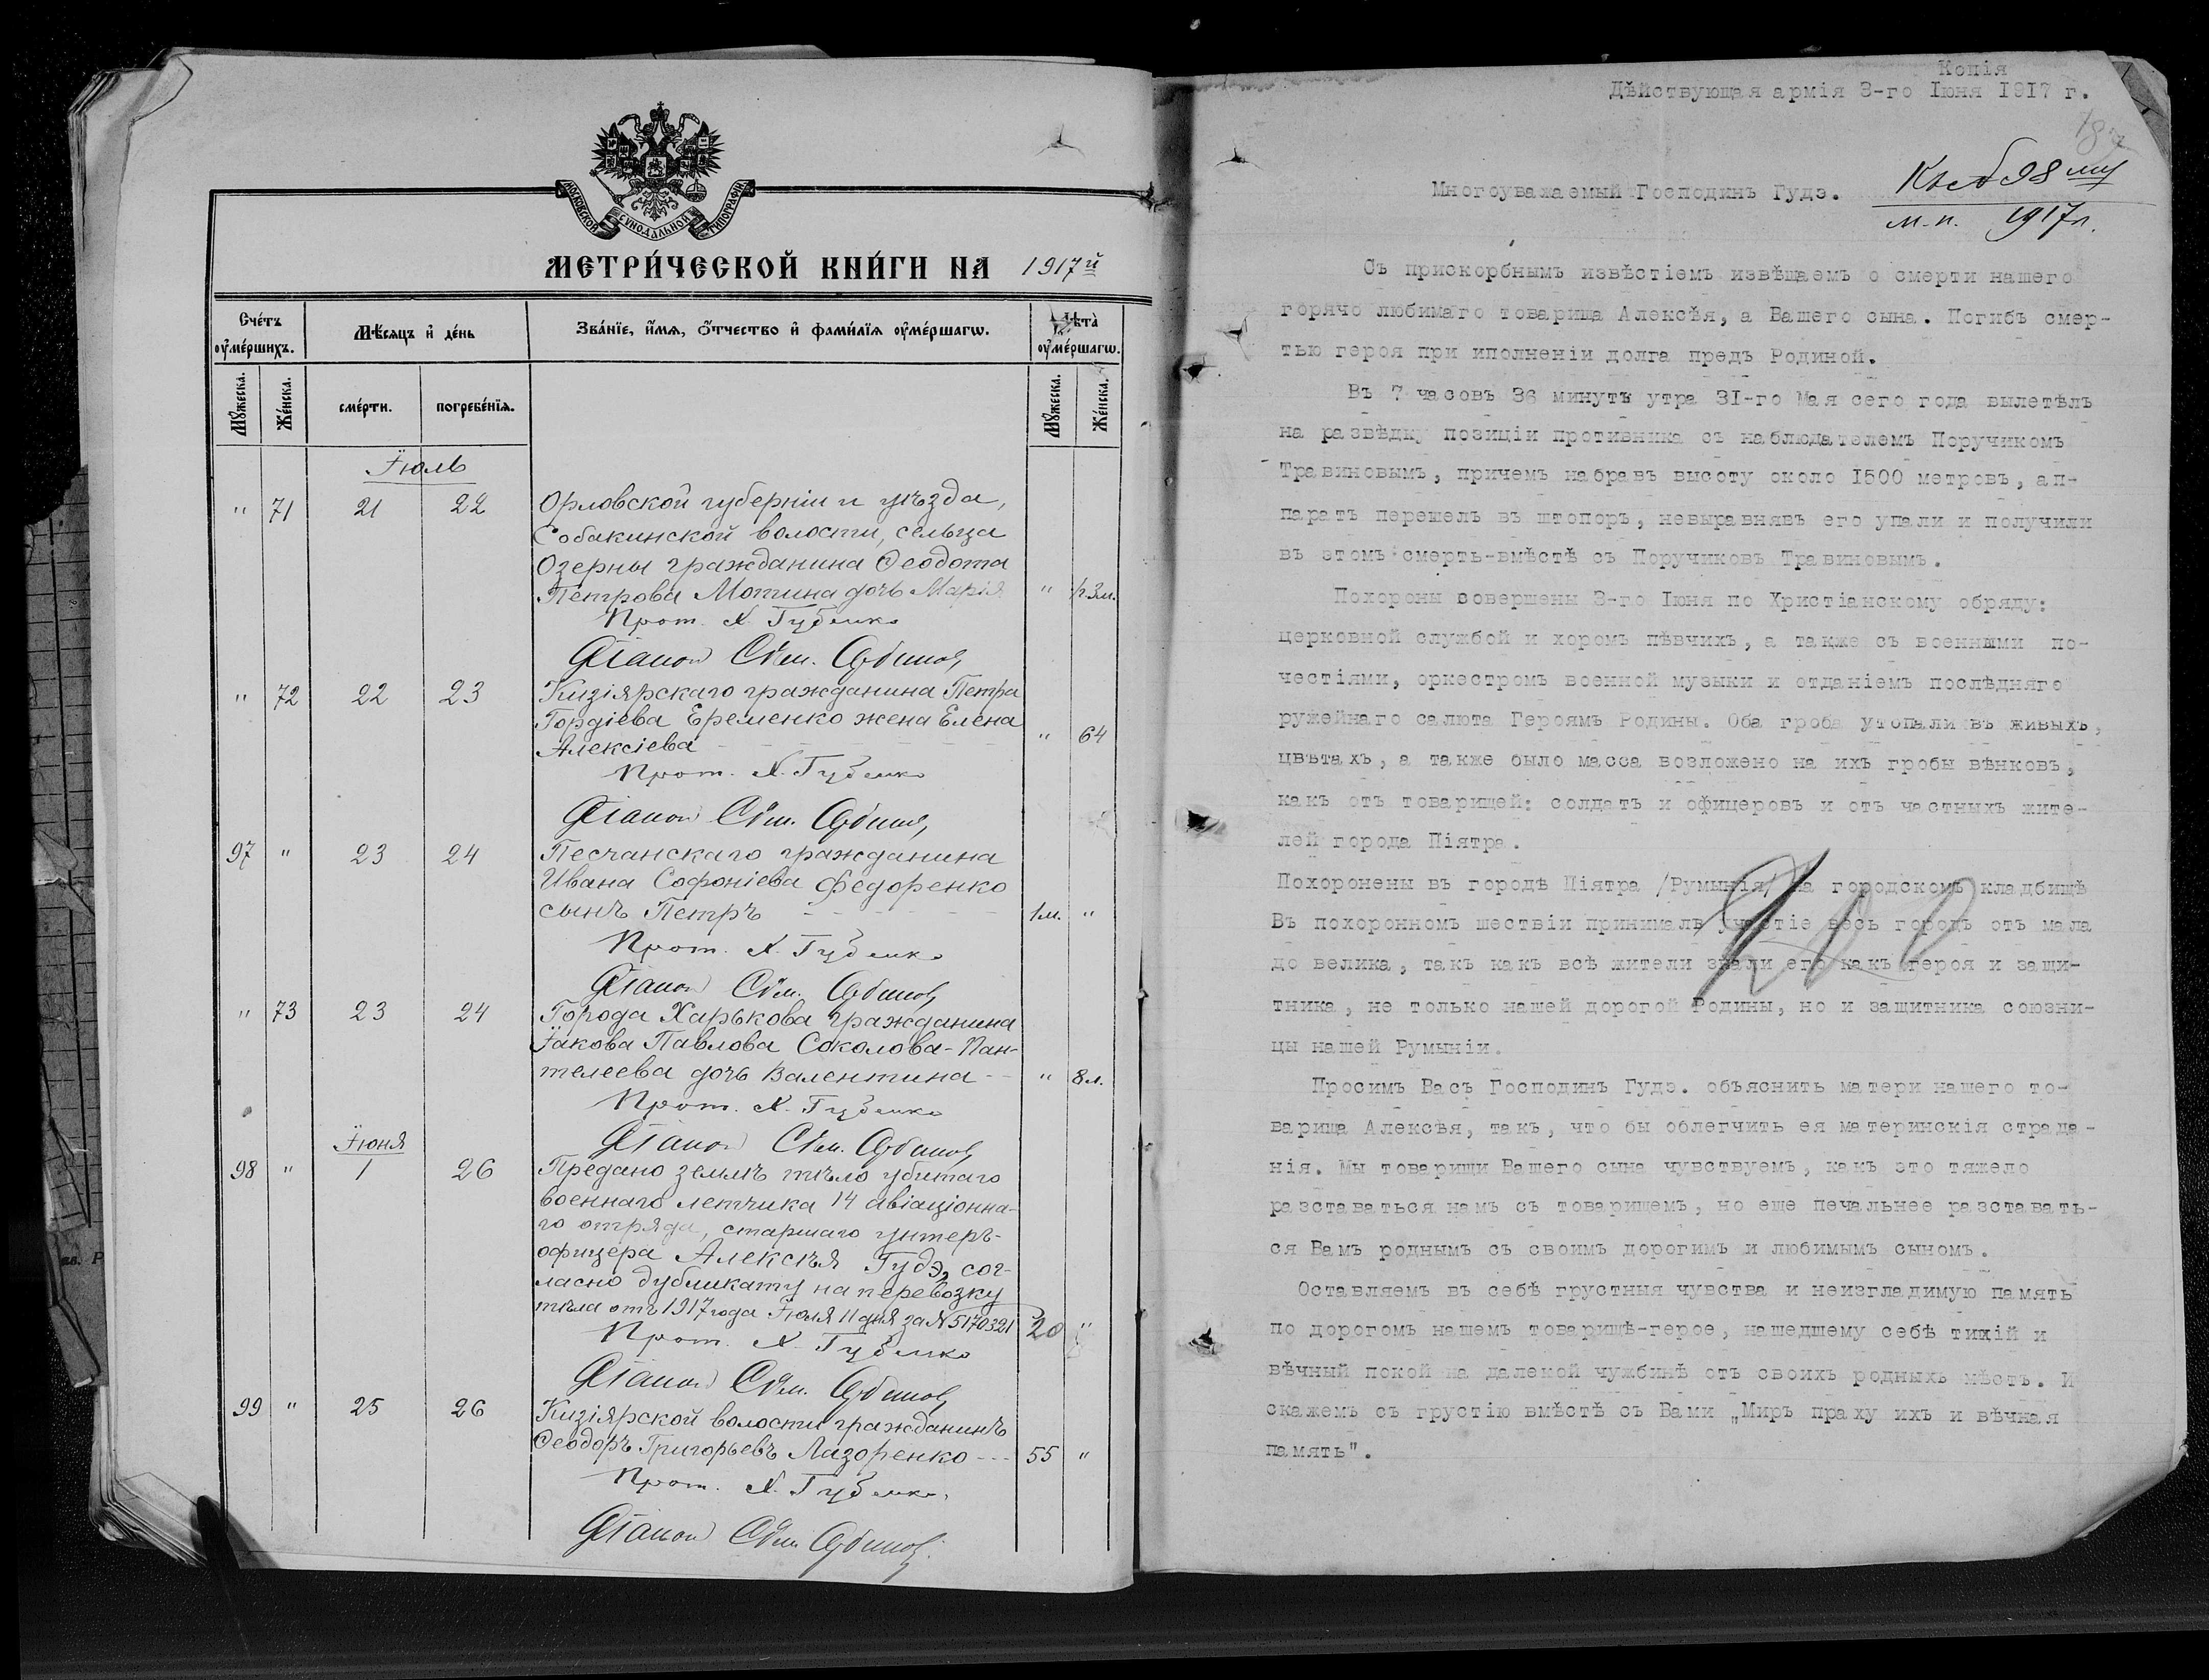 МОСКОВСКОЙ СѴНОДАЛЬНОЙ ТИПОГРАФІИ
МЕТРИ́ЧЕСКОЙ КНИ́ГИ НА 1917й
Сче́тъ оу҆ме́ршихъ.
Мѣ́сяцъ и҆ де́нь
Зва́нїе, и҆́мя, ѻ҆́тчество и҆ фами́лїя оу҆ме́ршагѡ.
Лѣта̀ оу҆ме́ршагѡ.
Мꙋ́жеска.
Же́нска.
сме́рти.
погребе́нїя.
Мꙋ́жеска.
Же́нска.
Іюль
" 71 21 22 Орловской губерніи и уѣзда,
Собакинской волости, сельца
Озерны гражданина Ѳеодота
Петрова Мотина дочь Марія " 1/2 3м.
Прот. Х. Губенко
Діакон Сѵм.
" 72 22 23 Кизіярскаго гражданина Петра
Гордіева Еременко жена Елена
Алексіева " 64
Прот. Х. Губенко
Діакон Сѵм.
97 " 23 24 Песчанскаго гражданина
Ивана Софоніева Федоренко
сынъ Петръ 1м. "
Прот. Х. Губенко
Діакон Сѵм.
" 73 23 24 Города Харькова гражданина
Іакова Павлова Соколова-Пан-
телеева дочь Валентина " 8л.
Прот. Х. Губенко
Діакон Сѵм.
Іюня
98 " 1 26 Предано землѣ тѣло убитаго
военнаго летчика 14 авіаціонна-
го отряда, старшаго унтеръ-
офицера Алексѣя Гудэ, сог-
ласно дубликату на перевозку
тѣла отъ 1917 года Іюля 11 дня за № 5170321 20 "
Прот. Х. Губенко
Діакон Сѵм.
99 " 25 26 Кизіярской волости гражданинъ
Ѳеодоръ Григорьевъ Лазоренко 55 "
Прот. Х. Губенко.
Діакон Сѵм.
Копія
Дѣйствующая армія 3-го Іюня 1917 г.
Многоуважаемый Господинъ Гудэ.
98
м.п. 1917г.
Съ прискорбнымъ извѣстіемъ извѣщаемъ о смерти нашего
горячо любимаго товарища Алексѣя, а Вашего сына. Погибъ смер-
тью героя при иполненіи долга предъ Родиной.
Въ 7 часовъ 36 минутъ утра 31-го Мая сего года вылетѣлъ
на развѣдку позиціи противника съ наблюдателемъ Поручикомъ
Травиновымъ, причемъ набравъ высоту около 1500 метровъ, ап-
паратъ перешелъ въ штопоръ, невыравнявъ его упали и получили
въ этомъ смерть-вмѣстѣ съ Поручиковъ Травиновымъ.
Похороны совершены 3-го Іюня по Христіанскому обряду:
церковной службой и хоромъ пѣвчихъ, а также съ военными по-
честіями, оркестромъ военной музыки и отданіемъ послѣдняго
ружейнаго салюта Героямъ Родины. Оба гроба утопали въ живыхъ,
цвѣтахъ, а также было масса возложено на ихъ гробы вѣнковъ,
какъ отъ товарищей: солдатъ и офицеровъ и отъ частныхъ жите-
лей города Піятра.
Похоронены въ городѣ Піятра /Румынія/ на городскомъ кладбищѣ
Въ похоронномъ шествіи принималъ участіе весь городъ отъ мала
до велика, такъ какъ всѣ жители знали его какъ героя и защи-
тника, не только нашей дорогой Родины, но и защитника союзни-
цы нашей Румыніи.
Просимъ Васъ Господинъ Гудэ. объяснить матери нашего то-
варища Алексѣя, такъ, что бы облегчить ея материнскія страда-
нія. Мы товарищи Вашего сына чувствуемъ, какъ это тяжело
разставаться намъ съ товарищемъ, но еще печальнее разставать-
ся Вамъ роднымъ съ своимъ дорогимъ и любимымъ сыномъ.
Оставляемъ въ себѣ грустныя чувства и неизгладимую память
по дорогомъ нашемъ товарищѣ-герое, нашедшему себѣ тихій и
вѣчный покой на далекой чужбинѣ отъ своихъ родныхъ мѣстъ. И
скажемъ съ грустію вмѣстѣ съ Вами „Миръ праху ихъ и вѣчная
память".